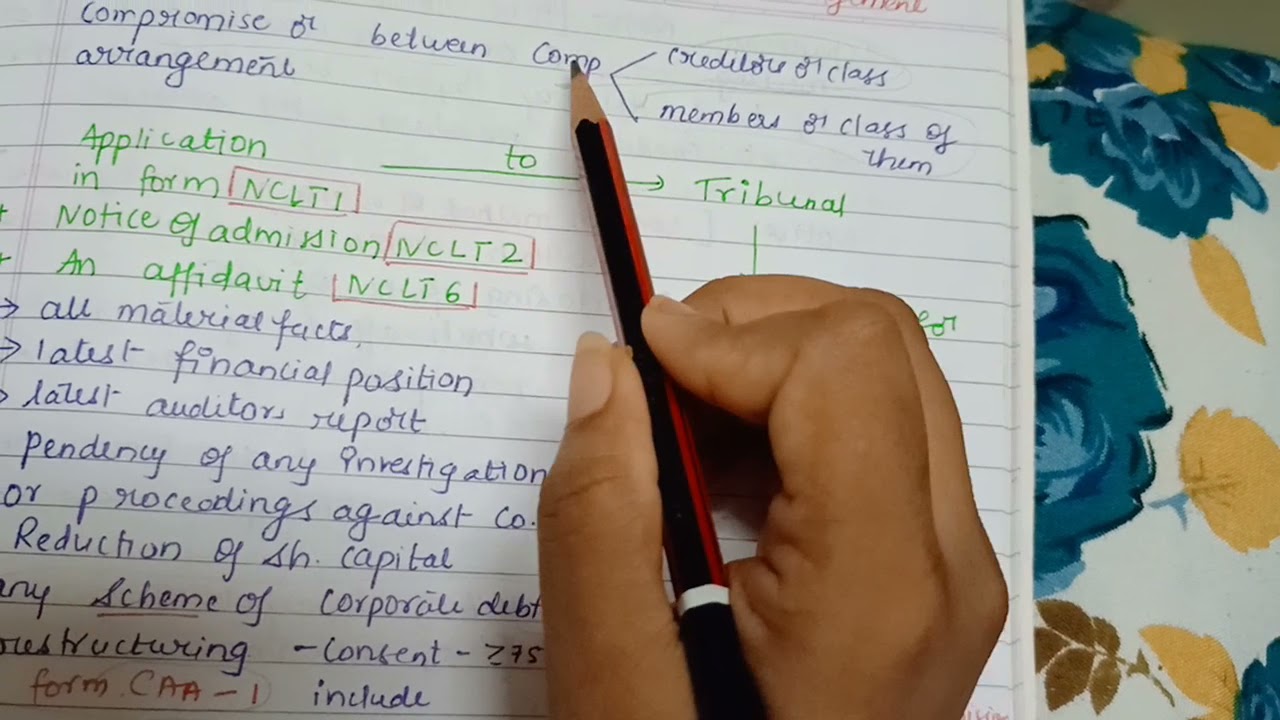 gement
compromise or between Comp creditors or class
arrangement members or class of
them
Application to Tribunal
in form NCLT1
Notice of admission NCLT 2
An affidavit NCLT 6
→ all material facts, for
→ latest financial position
latest auditors report
pendency of any investigation
or proceedings against Co.
Reduction of sh. capital
any scheme of corporate debt
restructuring - Consent - ≥75
form CAA-1 include